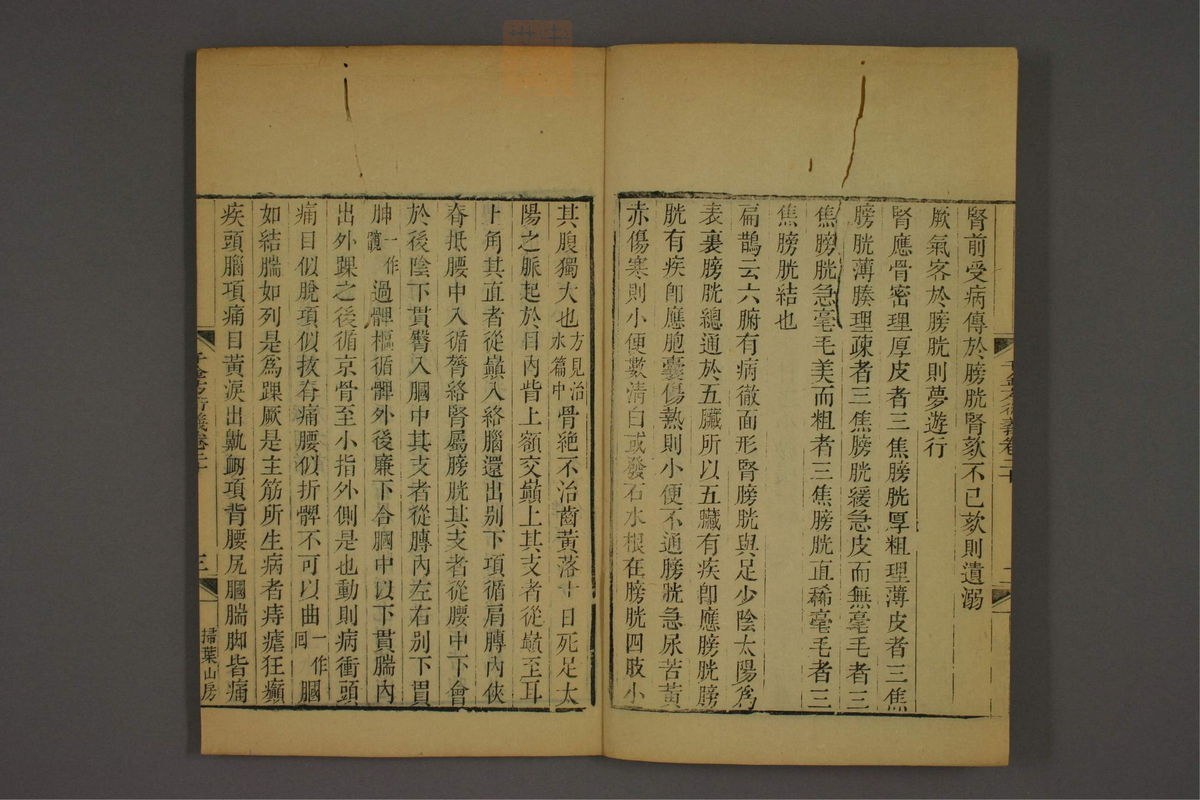 腎前受病傳於膀胱腎欬不已欬則遺溺
厥氣客於膀胱則夢遊行
腎應骨密理厚皮者三焦膀胱厚粗理薄皮者三焦
膀胱薄腠理疎者三焦膀胱緩急皮而無毫毛者三
焦膀胱急毫毛美而粗者三焦膀胱直稀毫毛者三
焦膀胱結也
扁鵲云六腑有病徹面形腎膀胱與足少陰太陽爲
表裏膀胱總通於五臟所以五臟有疾卽應膀胱膀
胱有疾卽應胞囊傷熱則小便不通膀胱急尿苦黃
赤傷寒則小便數清白或發石水根在膀胱四肢小
其腹獨大也方見治水篇中骨絶不治齒黃落十日死足太
陽之脈起於目內眥上額交巔上其支者從巔至耳
上角其直者從巔入絡腦還出別下項循肩膊內俠
脊抵腰中入循膂絡腎屬膀胱其支者從腰中下會
於後陰下貫臀入膕中其支者從膊內左右別下貫
胂一作髖過髀樞循髀外後廉下合膕中以下貫腨內
出外踝之後循京骨至小指外側是也動則病衝頭
痛目似脫項似拔脊痛腰似折髀不可以曲一作囘膕
如結腨如列是爲踝厥是主筋所生病者痔瘧狂癲
疾頭腦項痛目黃淚出鼽衂項背腰尻膕腨脚皆痛
千金方衍義卷二十
三
掃葉山房